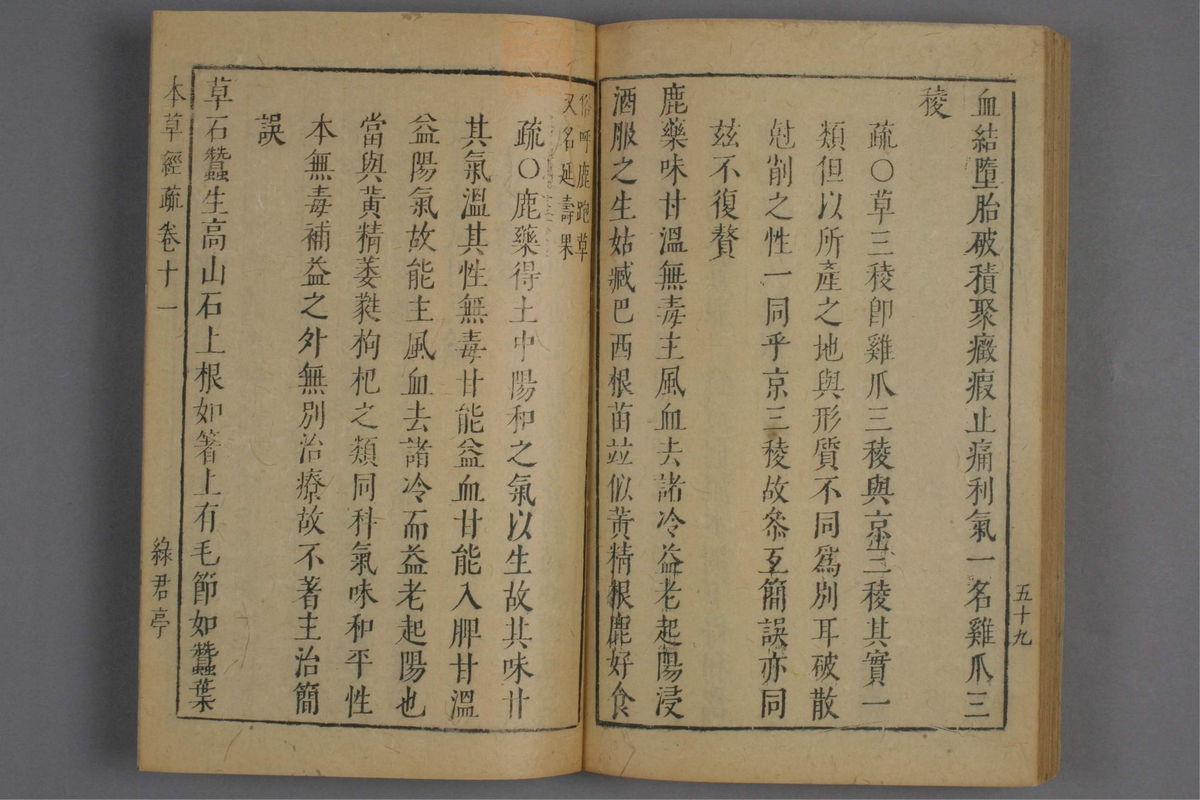 五十九
血結墮胎破積聚癥瘕止痛利氣一名雞爪三
稜
疏○草三稜卽雞爪三稜與京三稜其實一
類但以所產之地與形質不同爲別耳破散
尅削之性一同乎京三稜故叅互簡誤亦同
玆不復贅
鹿藥味甘溫無毒主風血去諸冷益老起陽浸
酒服之生姑臧巴西根苗竝似黃精根鹿好食
俗呼鹿跑草
又名延壽果
疏○鹿藥得土中陽和之氣以生故其味甘
其氣溫其性無毒甘能益血甘能入脾甘溫
益陽氣故能主風血去諸冷而益老起陽也
當與黃精萎蕤枸杞之類同科氣味和平性
本無毒補益之外無別治療故不著主治簡
誤
草石蠶生高山石上根如箸上有毛節如蠶葉
本草經疏卷十一
綠君亭